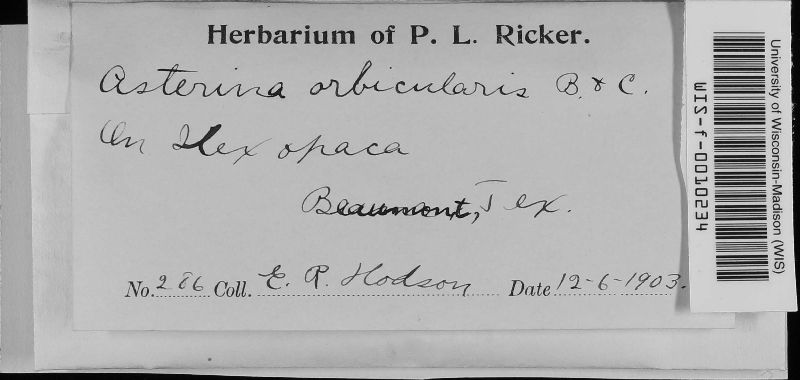 Herbarium of P. L. Ricker.
Asterina orbicularis B. & C.
On Ilex opaca
Beaumont, Tex.
No. 286 Coll. E. R. Hodson Date 12-6-1903.
WIS-f-0010234
University of Wisconsin-Madison (WIS)